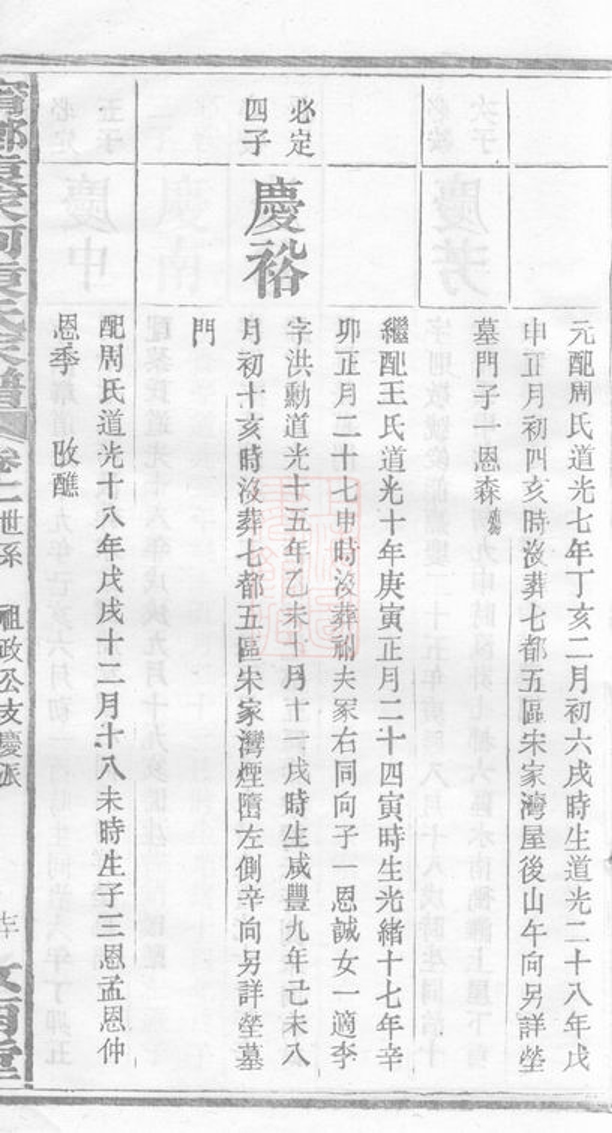 元配周氏道光七年丁亥二月初六戌時生道光二十八年戊
申正月初四亥時沒葬七都五區宋家灣屋後山午向另詳塋
墓門子一恩森
繼配王氏道光十年庚寅正月二十四寅時生光緒十七年辛
卯正月二十七申時沒葬祔夫冢右同向子一恩誠女一適李
必定
四子
慶裕
字洪勳道光十五年乙未十月十一戌時生咸豐九年己未八
月初十亥時沒葬七都五區宋家灣煙墩左側辛向另詳塋墓
門
配周氏道光十八年戊戌十二月十八未時生子三恩孟恩仲
恩季 改醮
氏家譜 卷 世系 祖政公支慶派